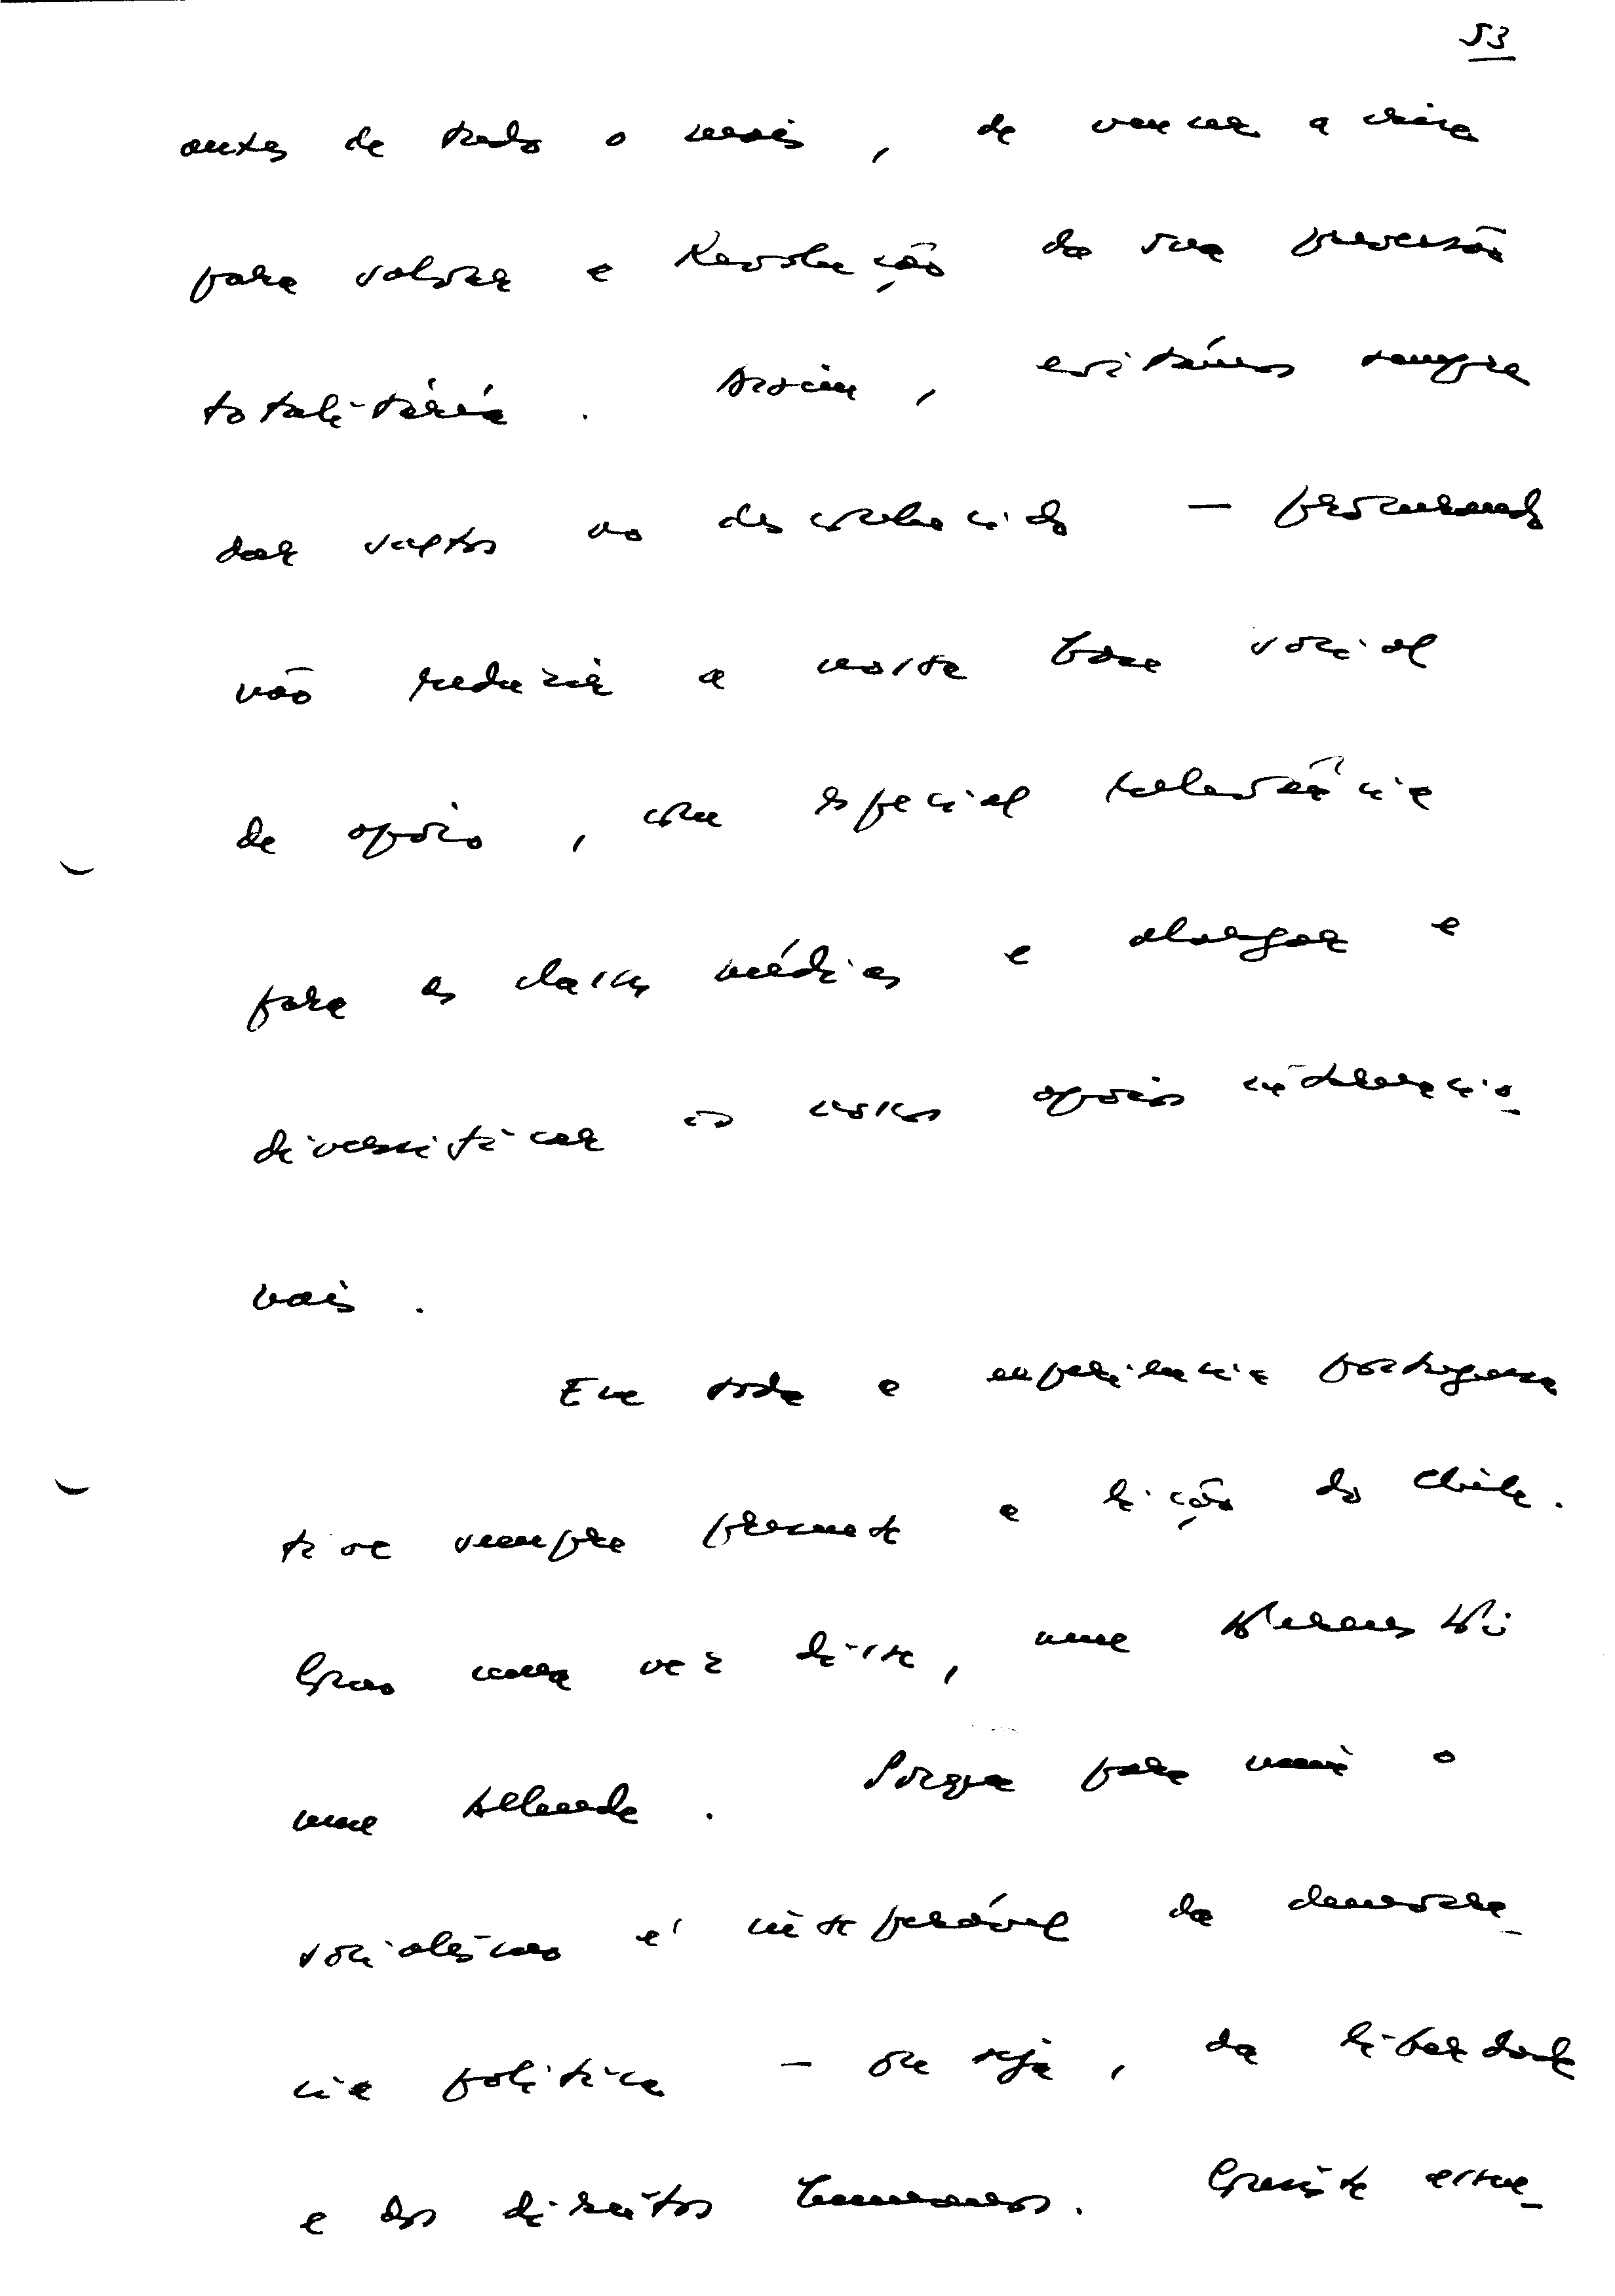 53
antes de tudo o mais, de vencer a crise
para salvar a Revolução da sua perversão
totalitária. Assim, evitámos sempre
dar saltos no desconhecido — procurando
não reduzir a nossa base social
de apoio, com especial relevância
para as classes médias e alargar e
diversificar os nossos apoios internacio-
nais.
Em toda a experiência portuguesa
tive sempre presente a lição do Chile.
Como uma vez disse, nem Kerenski
nem Allende. Porque para mim o
socialismo é inseparável da democra-
cia política — ou seja, da liberdade
e dos direitos humanos.